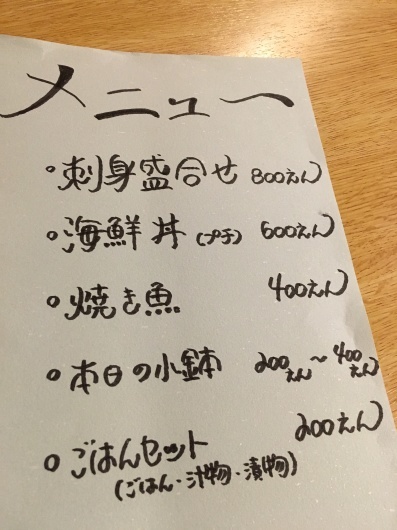 メニュー
○刺身盛合せ 800えん
○海鮮丼(プチ) 600えん
○焼き魚 400えん
○本日の小鉢 200えん〜400えん
○ごはんセット 200えん
(ごはん・汁物・漬物)